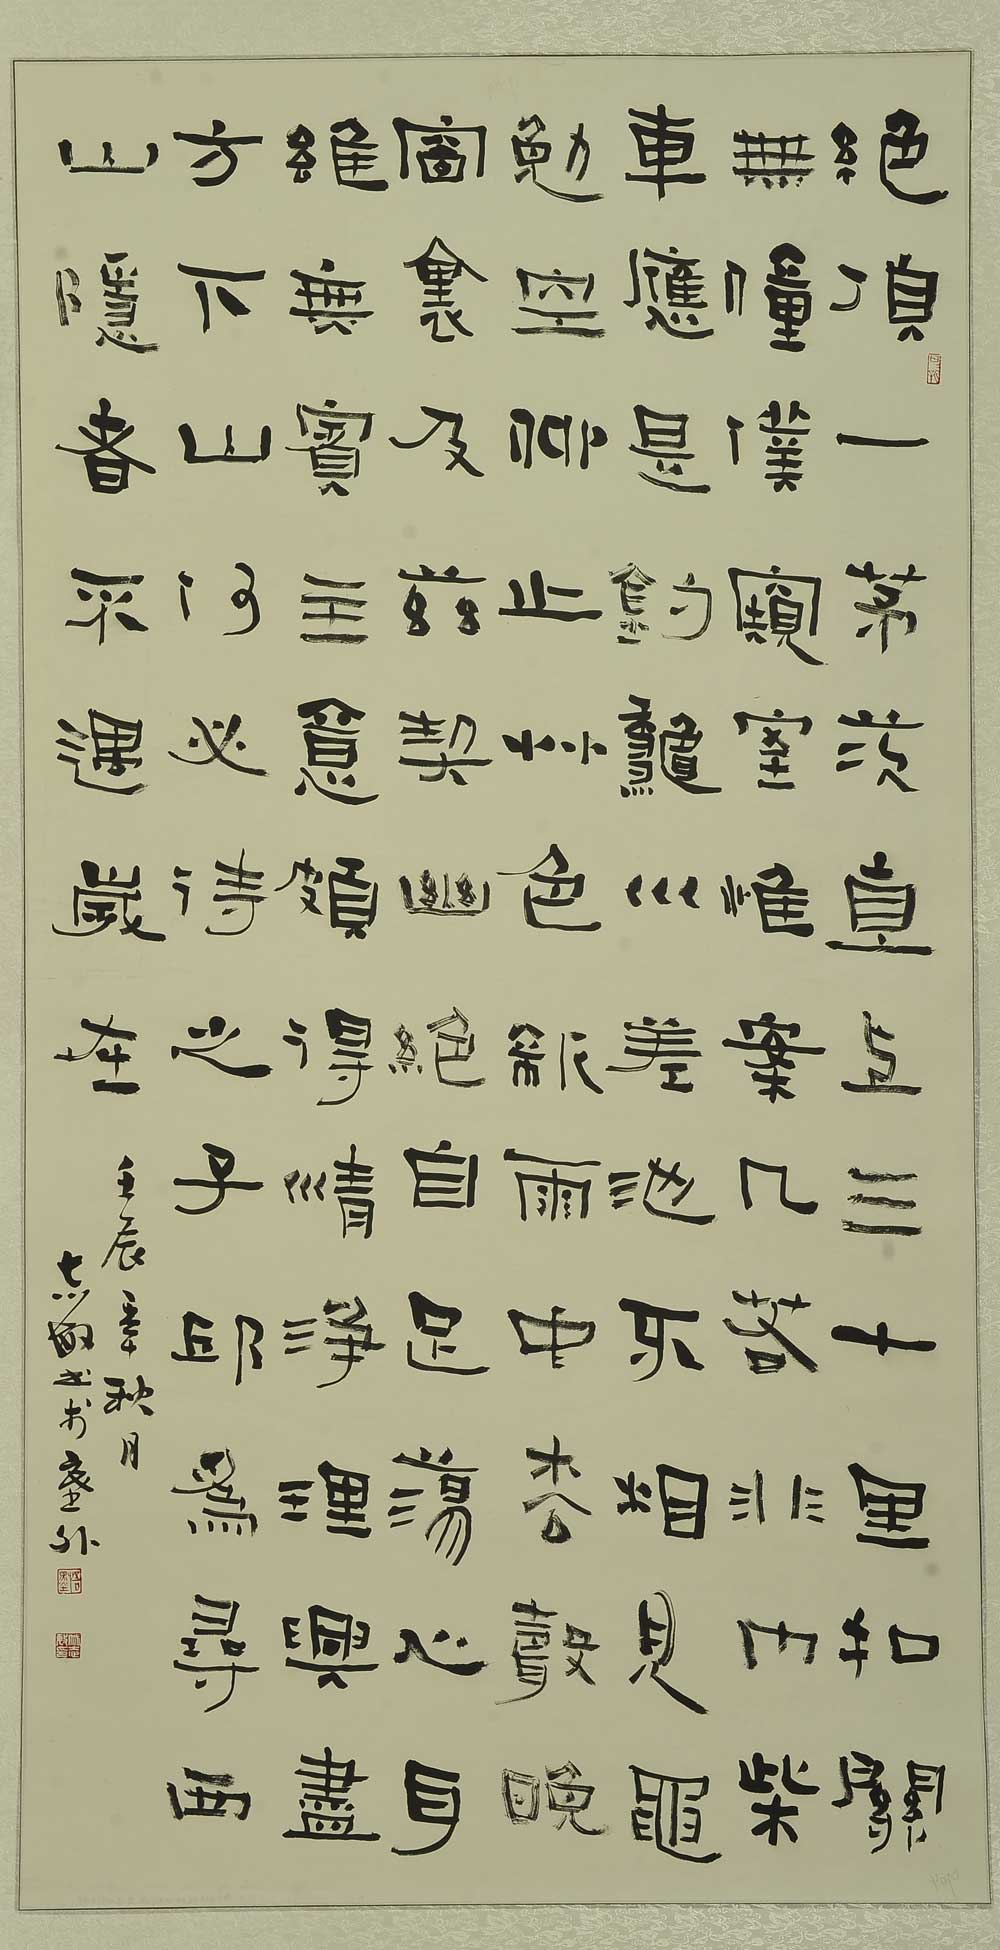 絕頂一茅茨直上三十里扣關
無僮僕窺室惟案几若非巾柴
車應是釣龝水差池不相見黽
勉空仰止艸色新雨中枩聲晚
窗裏及茲契幽絕自足蕩心耳
維無賓主意頗得清淨理興盡
方下山何必待之子邱為尋西
山隱者不遇歲在
壬辰年秋月
志敏書於塞外